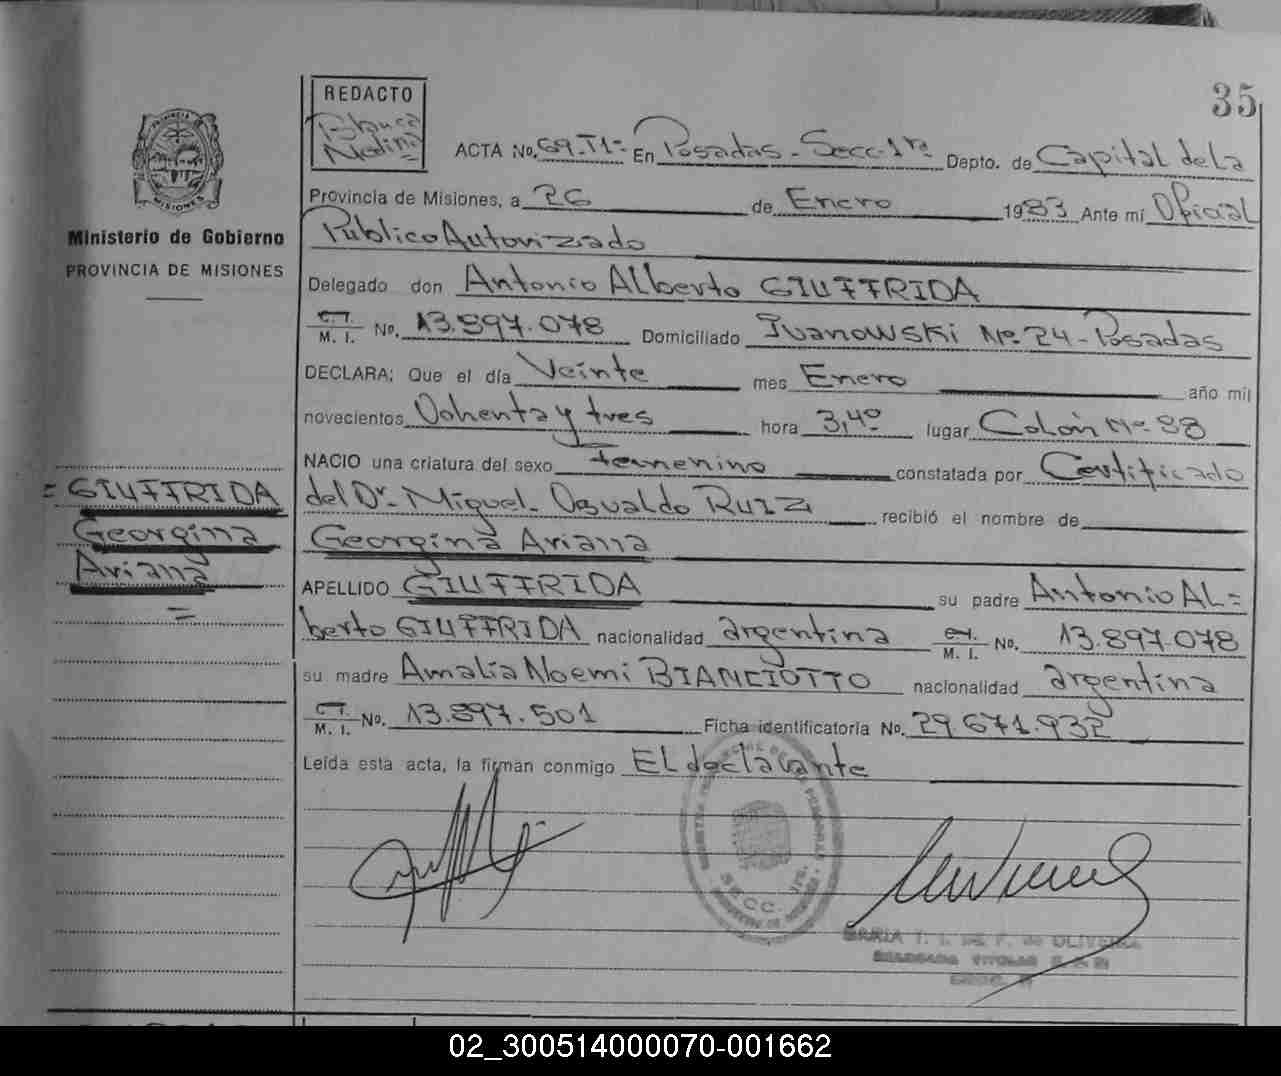 35
REDACTO
Blanca
Medina
=
PROVINCIA
MISIONES
Ministerio de Gobierno
PROVINCIA DE MISIONES
ACTA No. 69.T1= En Posadas - Secc-1ra Depto. de Capital de la
Provincia de Misiones, a 26 de Enero 1983 Ante mí Oficial
Público Autorizado
Delegado don Antonio Alberto GIUFFRIDA
C.I.
M. I. No. 13.897.078 Domiciliado Ivanowski Nº 24 - Posadas
DECLARA: Que el día Veinte mes Enero año mil
novecientos Ochenta y tres hora 3,40 lugar Colón Nº 88
NACIO una criatura del sexo femenino constatada por Certificado
del Dr. Miguel Osvaldo RUIZ recibió el nombre de
Georgina Ariana
APELLIDO GIUFFRIDA su padre Antonio Al=
berto GIUFFRIDA nacionalidad argentina C.I. M. I. No. 13.897.078
su madre Amalia Noemi BIANCIOTTO nacionalidad argentina
C.I.
M. I. No. 13.897.501 Ficha identificatoria No. 29.671.932
Leída esta acta, la firman conmigo El declarante
= GIUFFRIDA
Georgina
Ariana
=
SECC. 1ra.
MARIA T. I. DE F. de OLIVEIRA
DELEGADA TITULAR
02_300514000070-001662